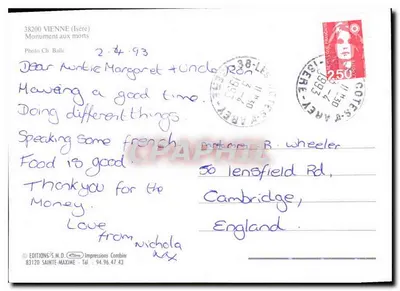 38200 VIENNE (Isère)
Monument aux morts
Photo Ch. Rale
2-4-93
Dear Auntie Margaret + Uncle Ron
Haveing a good time.
Doing different things
Speaking some french
Food is good.
Thankyou for the
Money.
Love
from Nichola
xx
38-LES COTES-D'AREY
ISERE
1993
2,50
R. Wheeler
50 lensfield Rd,
Cambridge,
England.
CPAPHIL
© EDITIONS S.M.D. Impressions Combier
83120 SAINTE-MAXIME - Tél : 94.96.47.43